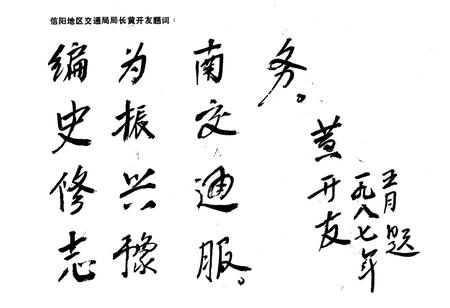 信阳地区交通局局长黄开友题词：
编史修志
为振兴豫
南交通服。
务。
黄开友
一九八七年
五月题